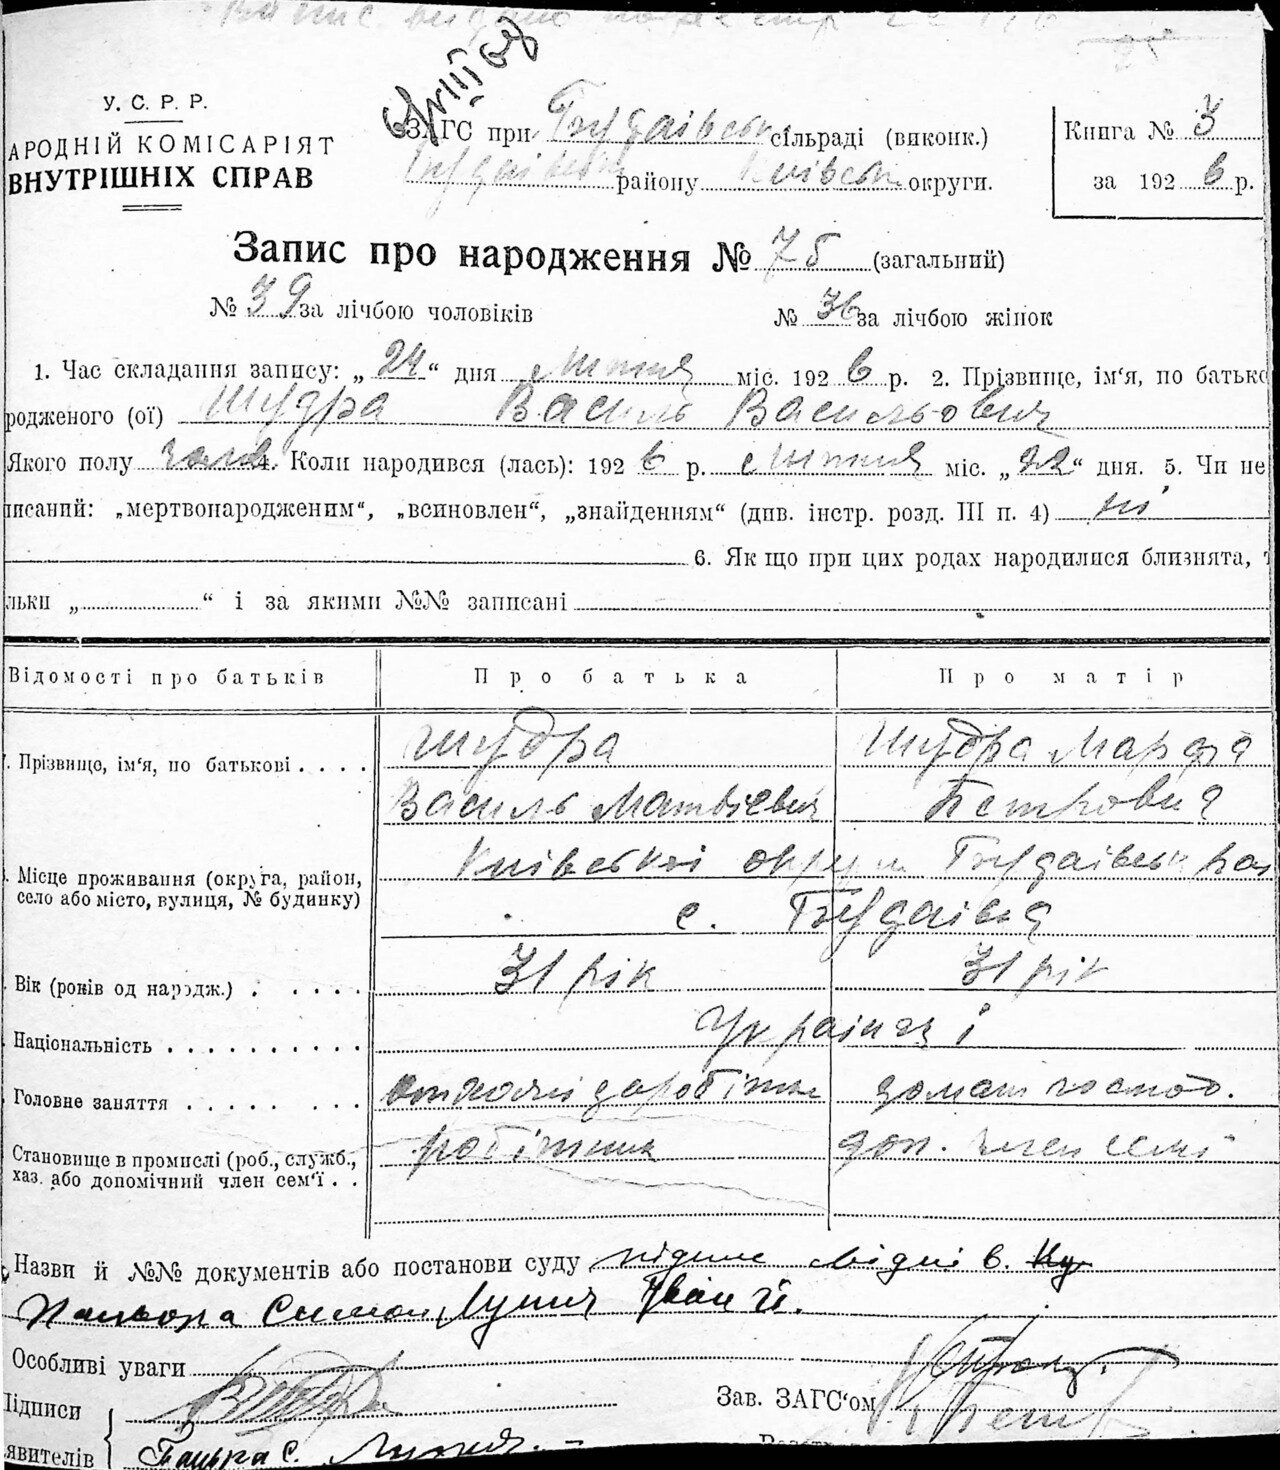 У. С. Р. Р.
АРОДНІЙ КОМІСАРІЯТ
ВНУТРІШНІХ СПРАВ
ЗАГС при Будаівськ сільраді (виконк.)
Будаівськ району Киівськ округи.
Книга № 3
за 192 6 р.
Запис про народження № 75 (загальний)
№ 39 за лічбою чоловіків
№ 36 за лічбою жінок
1. Час складання запису: „ 24 “ дня Липня міс. 192 6 р. 2. Прізвище, ім‘я, по батько
родженого (ої) Шудра Василь Васильович
Якого полу чолов. 4. Коли народився (лась): 192 6 р. Липня міс. „ 22 “ дня. 5. Чи не
писаний: „мертвонародженим“, „всиновлен“, „знайденням“ (див. інстр. розд. III п. 4) ні
6. Як що при цих родах народилися близнята, т
льки „ “ і за якими №№ записані
Відомості про батьків
Про батька
Про матір
. Прізвище, ім‘я, по батькові . . . .
Шудра
Василь Матвієвич
Шудра Марфа
Петровна
. Місце проживання (округа, район, село або місто, вулиця, № будинку)
Киівськоі округи Будаівськ рай
с. Будаівка
. Вік (років од народж.) . . . . .
31 рік
31 рік
. Національність . . . . . . . . . .
Украінці
. Головне заняття . . . . . . . .
домаш господ.
Становище в промислі (роб., служб., хаз. або допомічний член сем‘ї . .
робітник
доп. член семі
Назви й №№ документів або постанови суду
Симон Іван
Особливі уваги
Підписи
явителів
Зав. ЗАГС‘ом